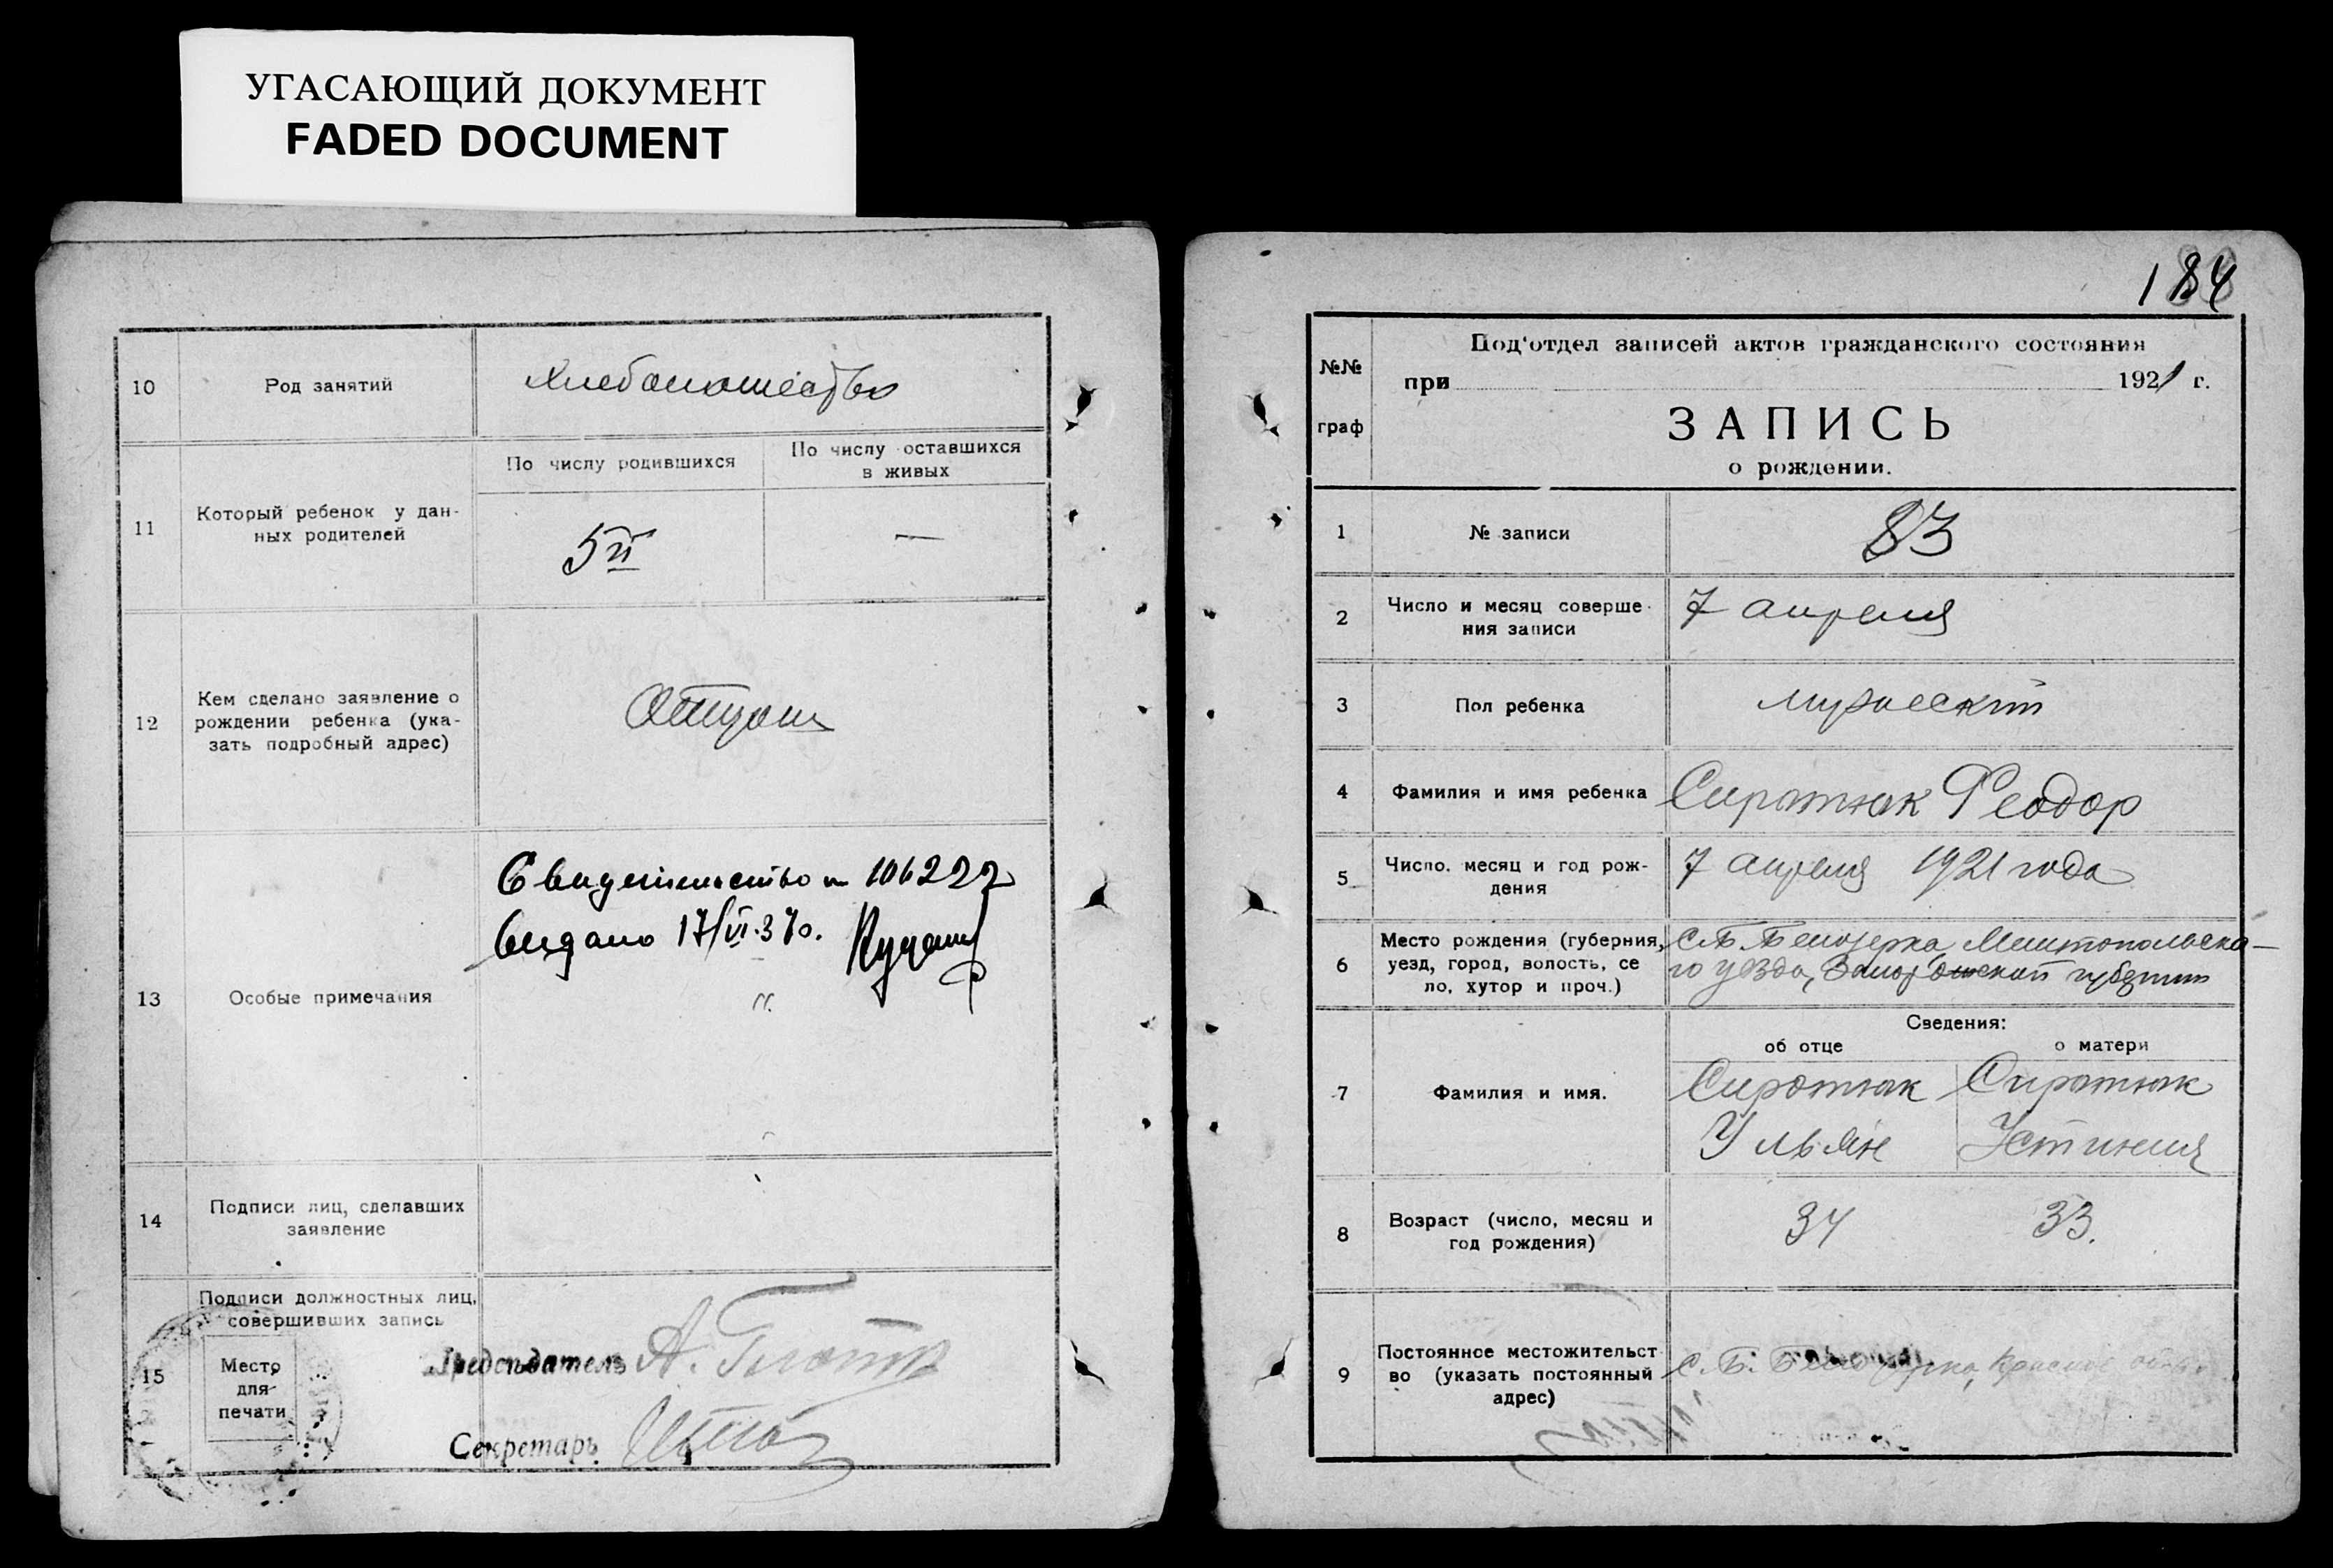 УГАСАЮЩИЙ ДОКУМЕНТ
FADED DOCUMENT
10
Род занятий
Хлебопашество
11
Который ребенок у дан-
ных родителей
По числу родившихся
По числу оставшихся
в живых
5й
—
12
Кем сделано заявление о
рождении ребенка (ука-
зать подробный адрес)
Отцом
13
Особые примечания
Свидетельство № 106222
выдано 17/VI.37г.
14
Подписи лиц, сделавших
заявление
15
Подписи должностных лиц,
совершивших запись
Место
для
печати
Председатель А.
Секретарь
184
№№
граф
Под'отдел записей актов гражданского состояния
при 1921 г.
ЗАПИСЬ
о рождении.
1
№ записи
83
2
Число и месяц соверше-
ния записи
7 апреля
3
Пол ребенка
мужеский
4
Фамилия и имя ребенка
Сиротюк Феодор
5
Число, месяц и год рож-
дения
7 апреля 1921 года
6
Место рождения (губерния,
уезд, город, волость, се
ло, хутор и проч.)
С. Б. Белозерка, Мелитопольска-
го уезда, губернии
Сведения:
об отце
о матери
7
Фамилия и имя.
Сиротюк
Ульян
Сиротюк
Устиния
8
Возраст (число, месяц и
год рождения)
34
33.
9
Постоянное местожительст
во (указать постоянный
адрес)
С. Б. Белозерка,